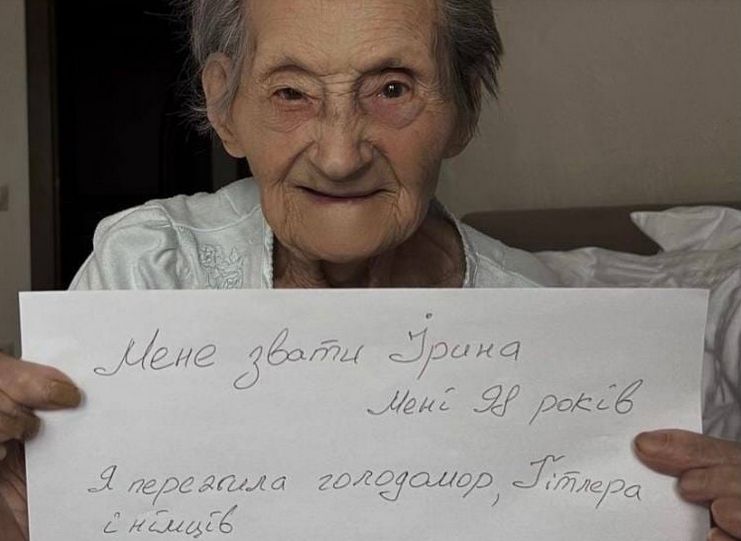 Мене звати Ірина
Мені 98 років
Я пережила голодомор, Гітлера
і німців